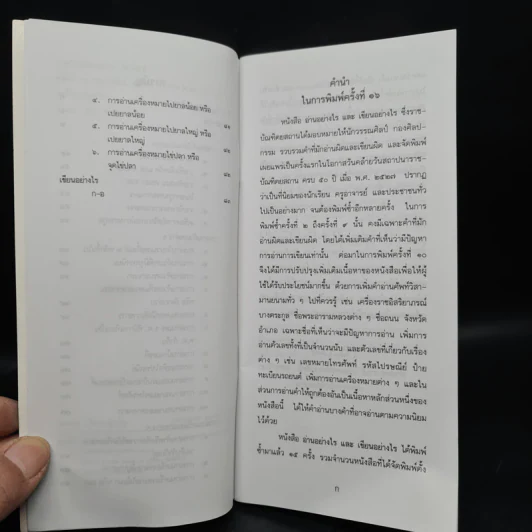 ๔. การอ่านเครื่องหมายไปยาลน้อย หรือ
เปยยาลน้อย
๕. การอ่านเครื่องหมายไปยาลใหญ่ หรือ
เปยยาลใหญ่
๖. การอ่านเครื่องหมายไข่ปลา หรือ
จุดไข่ปลา
เขียนอย่างไร
ก-อ
คำนำ
ในการพิมพ์ครั้งที่ ๑๖
หนังสือ อ่านอย่างไร และ เขียนอย่างไร ซึ่งราช-
บัณฑิตยสถานได้มอบหมายให้นักวรรณศิลป์ กองศิลป-
กรรม รวบรวมคำที่มักอ่านผิดและเขียนผิด และจัดพิมพ์
เผยแพร่เป็นครั้งแรกในโอกาสวันคล้ายวันสถาปนาราช-
บัณฑิตยสถาน ครบ ๕๐ ปี เมื่อ พ.ศ. ๒๕๒๗ ปรากฏ
ว่าเป็นที่นิยมของนักเรียน ครูอาจารย์ และประชาชนทั่ว
ไปเป็นอย่างมาก จนต้องพิมพ์ซ้ำอีกหลายครั้ง ในการ
พิมพ์ซ้ำครั้งที่ ๒ ถึงครั้งที่ ๙ นั้น คงมีเฉพาะคำที่มัก
อ่านผิดและเขียนผิด โดยได้เพิ่มเติมคำที่เห็นว่ามีปัญหา
การอ่านการเขียนเท่านั้น ต่อมาในการพิมพ์ครั้งที่ ๑๐
จึงได้มีการปรับปรุงเพิ่มเติมเนื้อหาของหนังสือเพื่อให้ผู้
ใช้ได้รับประโยชน์มากขึ้น ด้วยการเพิ่มคำอ่านศัพท์วิสา-
มานยนามทั่ว ๆ ไปที่ควรรู้ เช่น เครื่องราชอิสริยาภรณ์
บางตระกูล ชื่อพระอารามหลวงต่าง ๆ ชื่อถนน จังหวัด
อำเภอ เฉพาะชื่อที่เห็นว่าจะมีปัญหาการอ่าน เพิ่มการ
อ่านตัวเลขทั้งที่เป็นจำนวนนับ และตัวเลขที่เกี่ยวกับเรื่อง
ต่าง ๆ เช่น เลขหมายโทรศัพท์ รหัสไปรษณีย์ ป้าย
ทะเบียนรถยนต์ เพิ่มการอ่านเครื่องหมายต่าง ๆ และใน
ส่วนการอ่านคำให้ถูกต้องอันเป็นเนื้อหาหลักส่วนหนึ่งของ
หนังสือนี้ ได้ให้คำอ่านบางคำที่อาจอ่านตามความนิยม
ไว้ด้วย
หนังสือ อ่านอย่างไร และ เขียนอย่างไร ได้พิมพ์
ซ้ำมาแล้ว ๑๕ ครั้ง รวมจำนวนหนังสือที่ได้จัดพิมพ์ตั้ง
ก